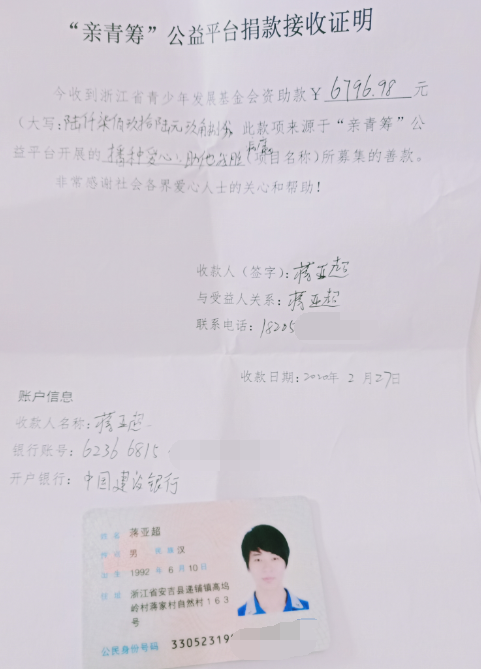 “亲青筹”公益平台捐款接收证明
今收到浙江省青少年发展基金会资助款￥6796.98元
(大写:陆仟柒佰玖拾陆元玖角捌分 此款项来源于“亲青筹”公
益平台开展的播种爱心,助他 康(项目名称)所募集的善款。
非常感谢社会各界爱心人士的关心和帮助！
收款人(签字):蒋亚超
与受益人关系:蒋亚超
联系电话:18205
收款日期:2020年2月27日
账户信息
收款人名称:蒋亚超
银行账号:6236 6815
开户银行:中国建设银行
姓名 蒋亚超
性别 男 民族 汉
出生 1992 年 6 月 10 日
住址 浙江省安吉县递铺镇高坞
岭村蒋家村自然村163
号
公民身份号码 33052319